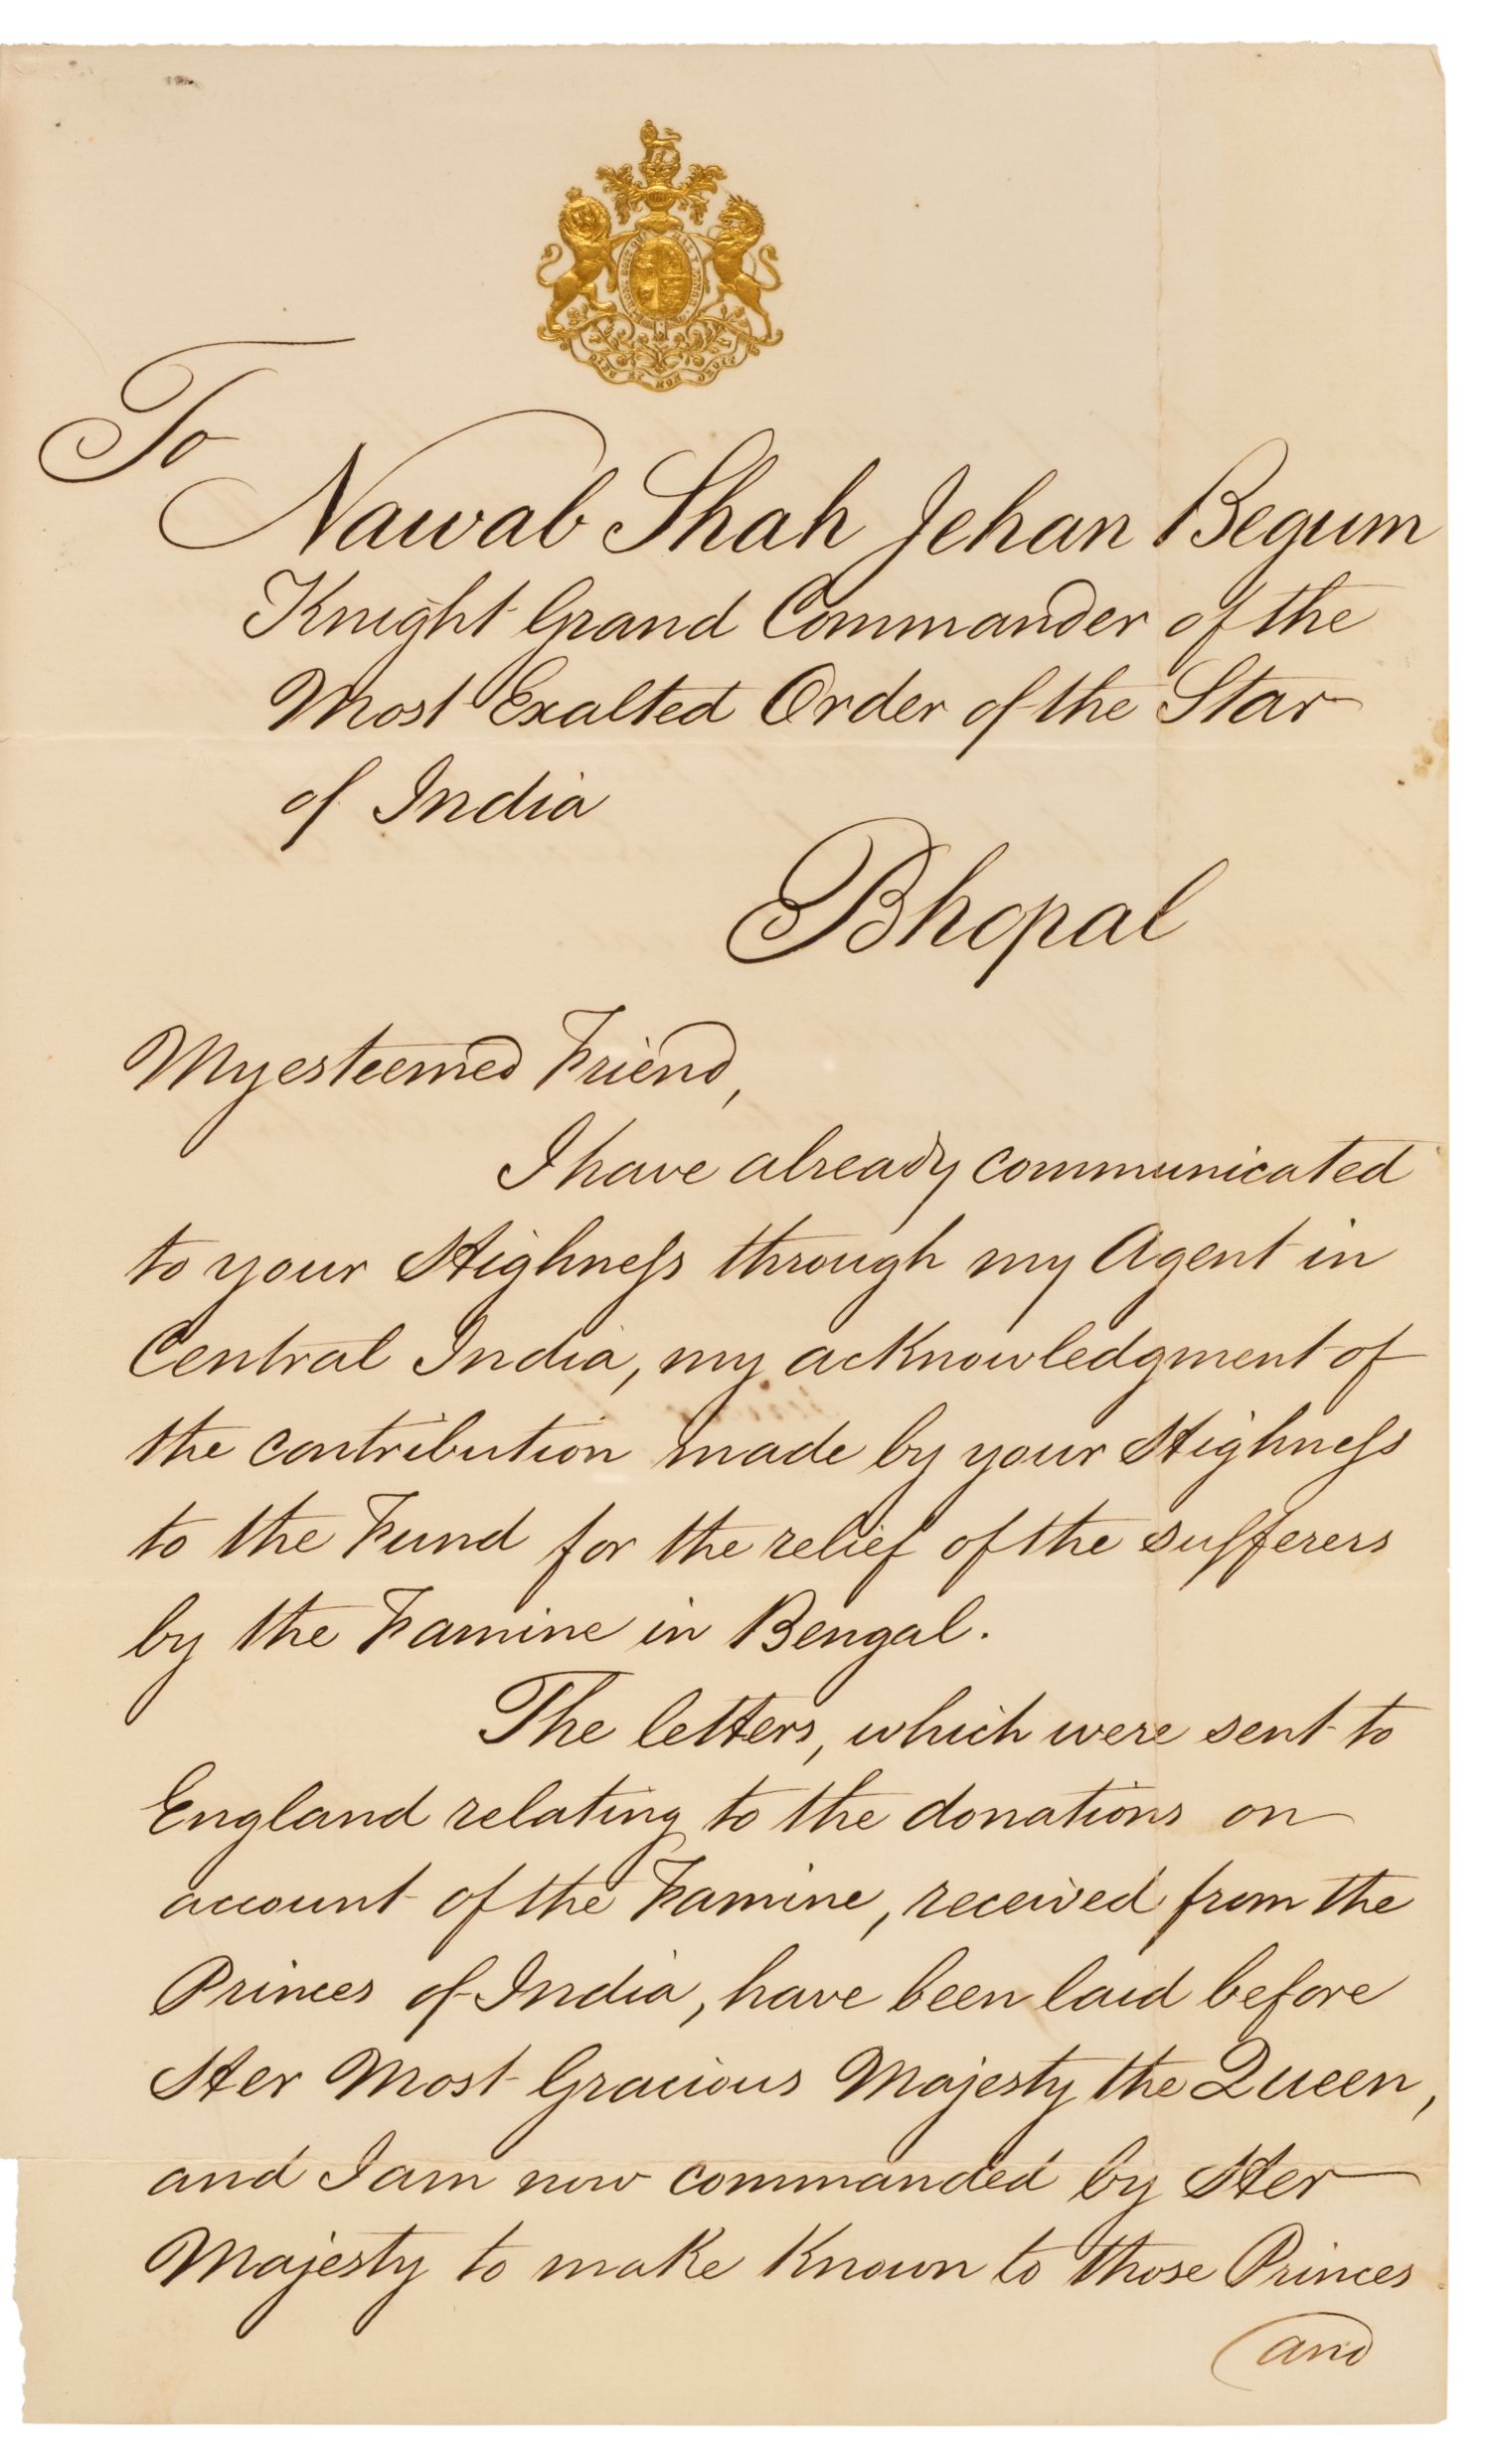 To
Nawab Shah Jehan Begum
Knight Grand Commander of the
Most Exalted Order of the Star
of India
Bhopal
My esteemed Friend,
I have already communicated
to your Highneſs through my Agent in
Central India, my acknowledgment of
the contribution made by your Highneſs
to the Fund for the relief of the sufferers
by the Famine in Bengal.
The letters, which were sent to
England relating to the donations on
account of the Famine, received from the
Princes of India, have been laid before
Her Most Gracious Majesty the Queen,
and I am now commanded by Her
Majesty to make known to those Princes
and